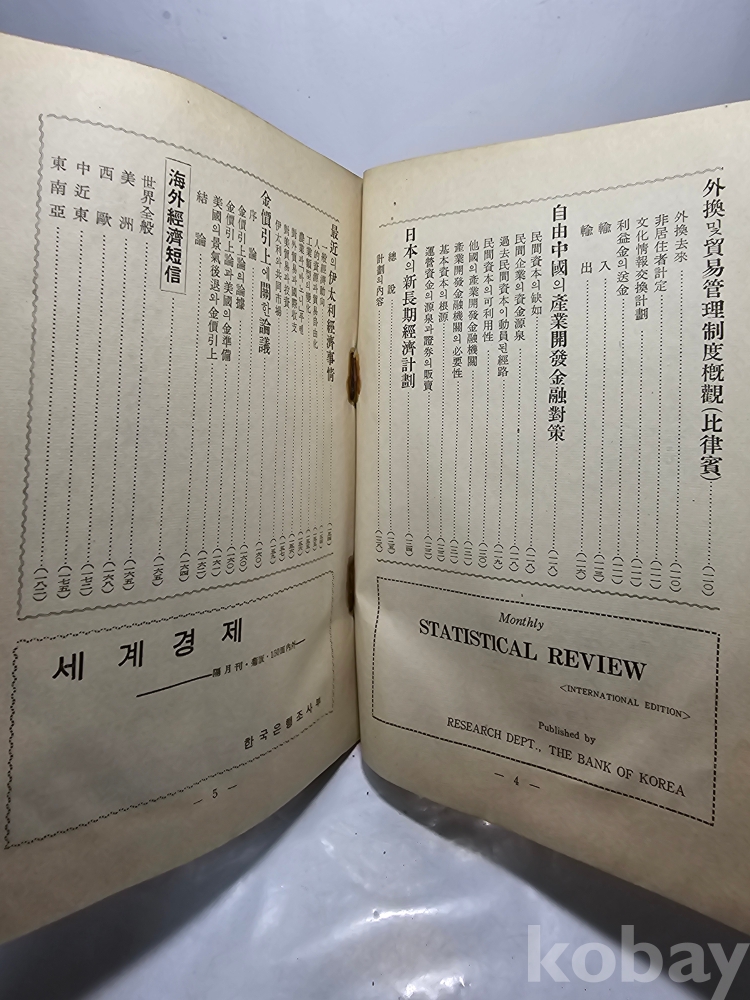 外換및貿易管理制度槪觀(比律賓)……(一一〇)
外換去來……(一一〇)
非居住者計定……(一一一)
文化情報交換計劃……(一一一)
利益金의送金……(一一二)
輸入
輸出
自由中國의產業開發金融對策……(一一八)
民間資本의缺如……(一一八)
民間企業의資金源泉
過去民間資本이動員된經路
民間資本의可利用性
他國의產業開發金融機關
產業開發金融機關의必要性
基本資本의根源
運營資金의源泉과證券의販賣
日本의新長期經濟計劃
總說
計劃의內容
Monthly
STATISTICAL REVIEW
<INTERNATIONAL EDITION>
Published by
RESEARCH DEPT., THE BANK OF KOREA
— 4 —
最近의伊太利經濟事情
一般經濟動向
工業類型의變化
人的資源과貿易自由化
對美貿易과投資
伊太利와共同市場
金價引上에關한論議……(一六〇)
序論……(一六〇)
金價引上論의論據
金價引上論과美國의金準備
美國의景氣後退와金價引上
結論
海外經濟短信
世界全般……(一六五)
美洲……(一六五)
西歐……(一六八)
中近東……(一七二)
東南亞……(一七五)
세계경제
隔月刊・
한국은행조사부
— 5 —
kobay